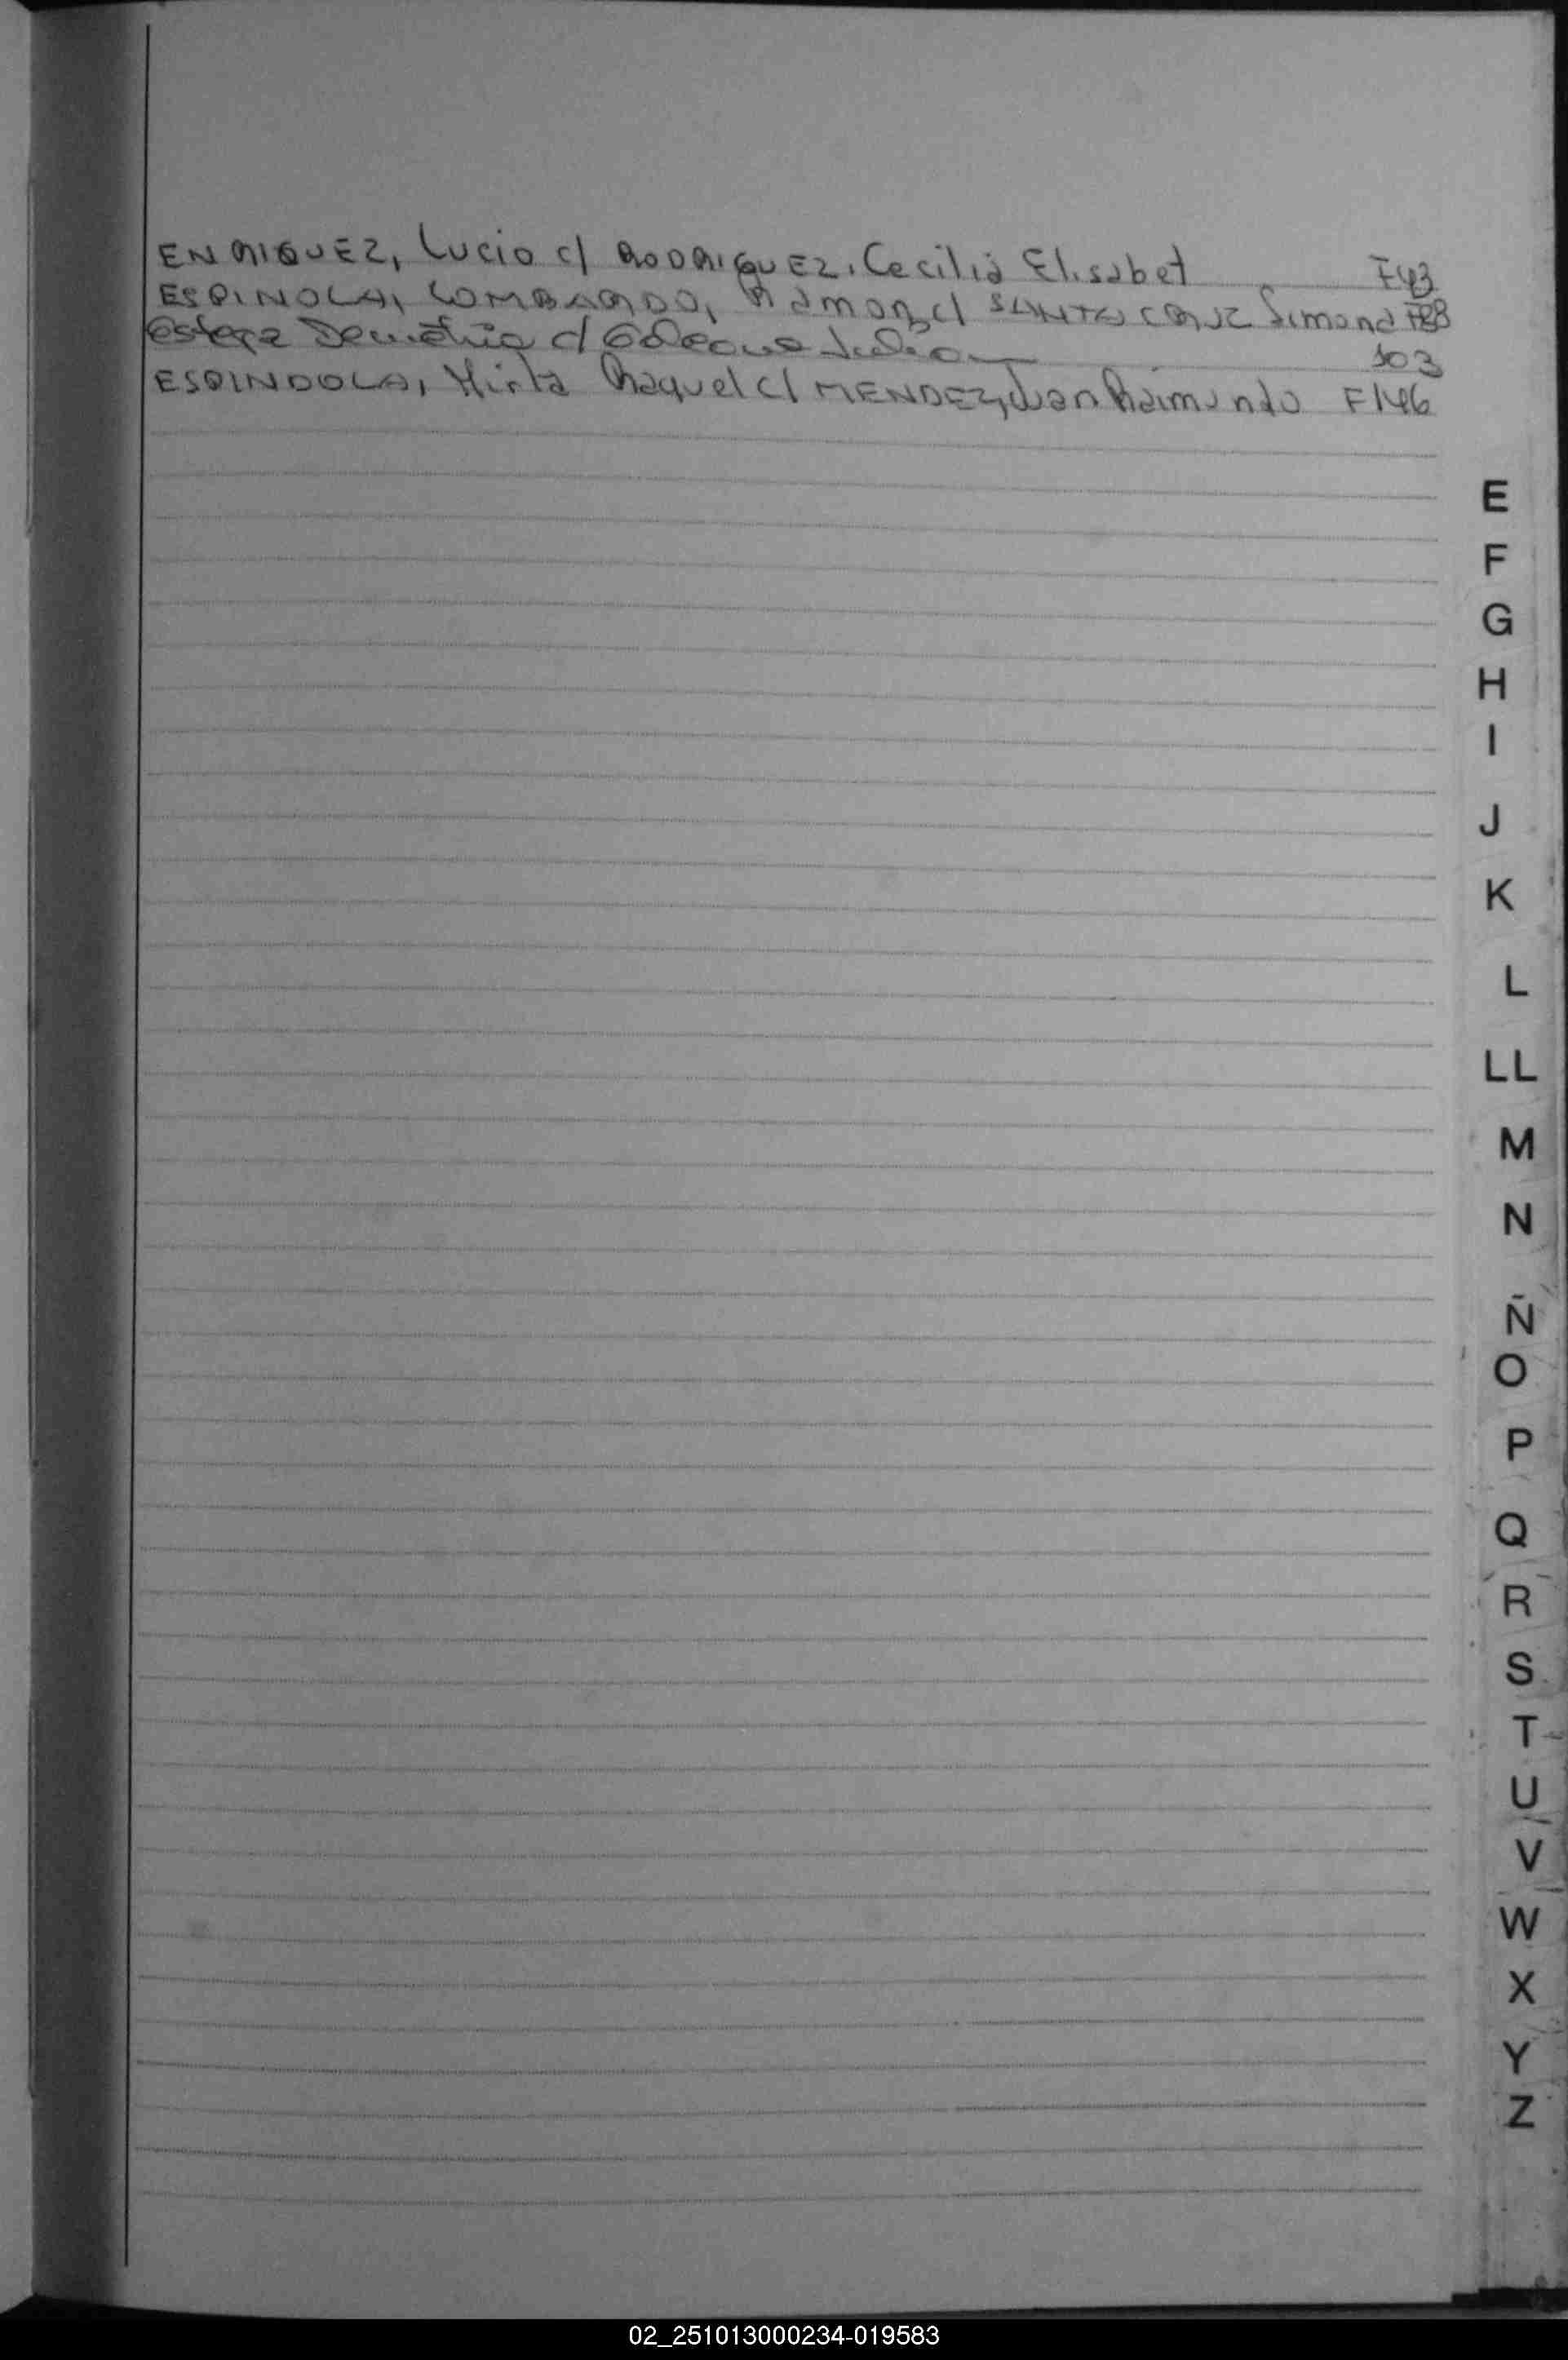 ENRIQUEZ, Lucio c/ RODRIGUEZ, Cecilia Elisabet F43
ESPINOLA, LOMBARDO, Ramon c/ SANTA CRUZ Simona
Demetrio c/ 103
ESPINDOLA, Mirta Raquel c/ MENDEZ, Juan Raimundo F146
E
F
G
H
I
J
K
L
LL
M
N
Ñ
O
P
Q
R
S
T
U
V
W
X
Y
Z
02_251013000234-019583